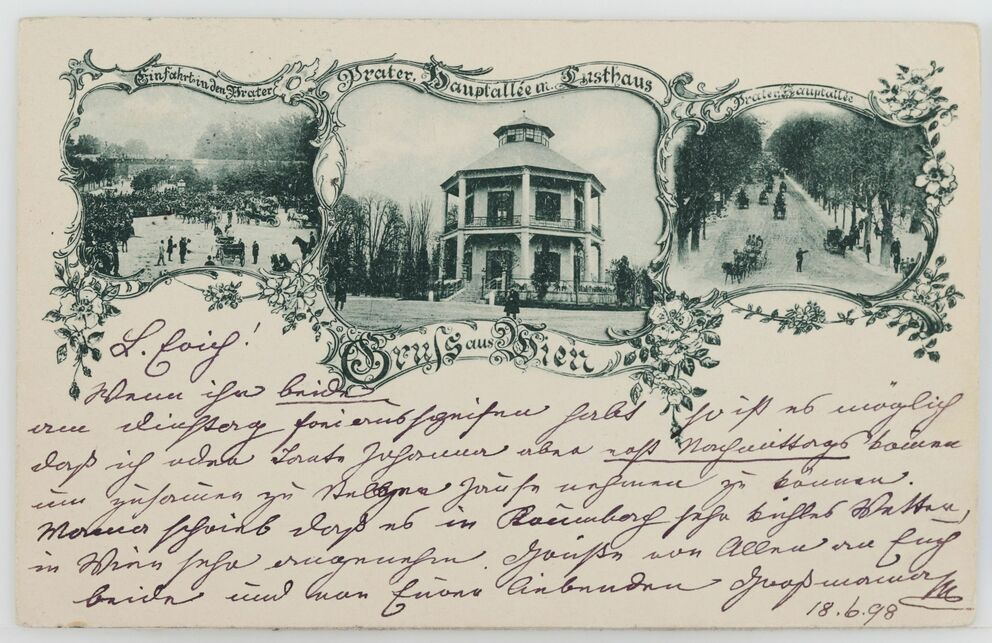 Einfahrt in den Prater
Prater, Hauptallée m. Lusthaus
Prater, Hauptallée
Gruss aus Wien
L. Erich!
Wenn ihr beide
am Dienstag frei habt so ist es möglich
daß ich oder Tante Johanna aber erst Nachmittags kommen
um zusammen zu Jause nehmen zu können.
Mama schrieb daß es in sehr kühles Wetter,
in Wien sehr angenehm. Grüße von Allen an Euch
beide und von Eurer liebenden Großmama
18.6.98